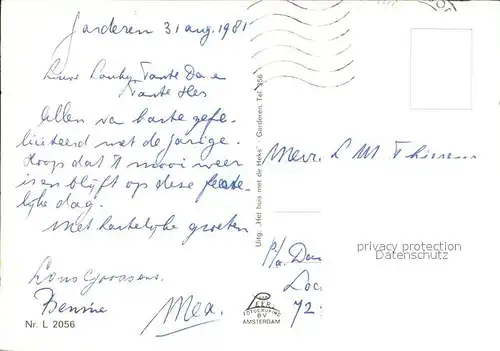 Garderen 31 aug. 1981
Lieve Tante Da en
Tante Hes
Allen van harte gefe-
liciteerd met de jarige.
Hoop dat 't mooi weer
is en blijft op deze feeste-
lijke dag.
Met hartelijke groeten
Bennie
Mea.
Nr. L 2056
Uitg.: „Het huis met de Heks" - Garderen, Tel. 356
VAN
LEER'S
FOTODRUKIND.
B.V.
AMSTERDAM
Mevr. L M
P/a. Dau
Loc
72
privacy protection
Datenschutz